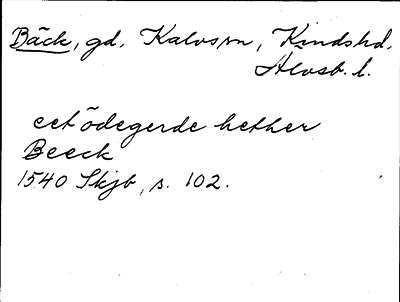 Bäck, gd. Kalvs sn, Kindshd.
Älvsb. l.
eet ödegerde hether
Beeck
1540 Skjb, s. 102.